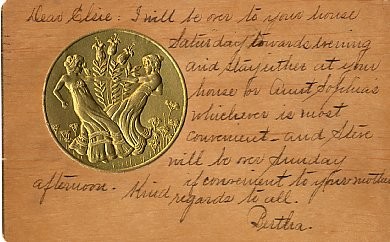 Dear Elsie: I will be over to your house
Saturday towards evening
and stay either at your
house or Aunt Sophias
whichever is most
convenient - and Steve
will be over Sunday
afternoon. if convenient to your mother
Kind regards to all.
Bertha.